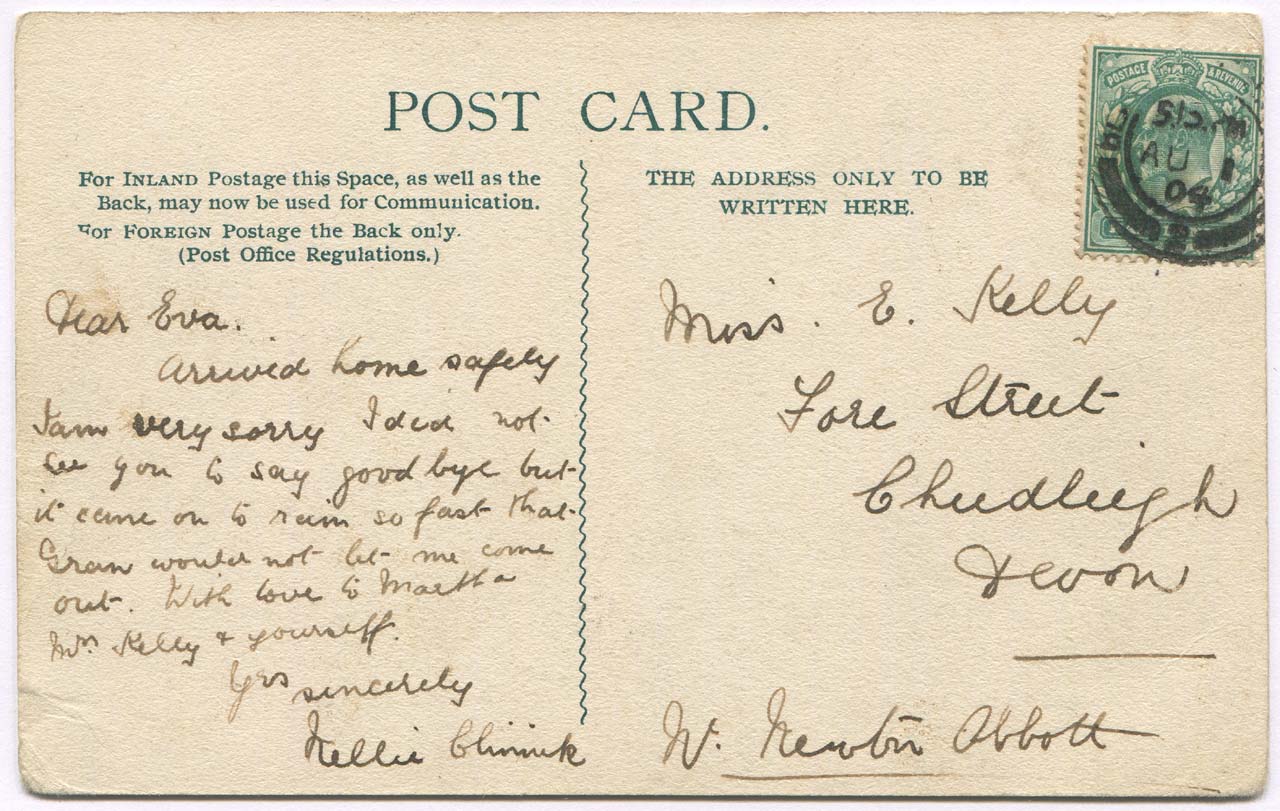 POST CARD.
For INLAND Postage this Space, as well as the
Back, may now be used for Communication.
For FOREIGN Postage the Back only.
(Post Office Regulations.)
THE ADDRESS ONLY TO BE
WRITTEN HERE.
POSTAGE & REVENUE
5.15. PM
AU 1
04
Dear Eva.
Arrived home safely
I am very sorry I did not
see you to say good bye but
it came on to rain so fast that
Gran would not let me come
out. With love to Martha
Mrs Kelly & yourself.
Yrs sincerely
Nellie
Miss. E. Kelly
Fore Street
Chudleigh
Devon
Nr. Newton Abbott